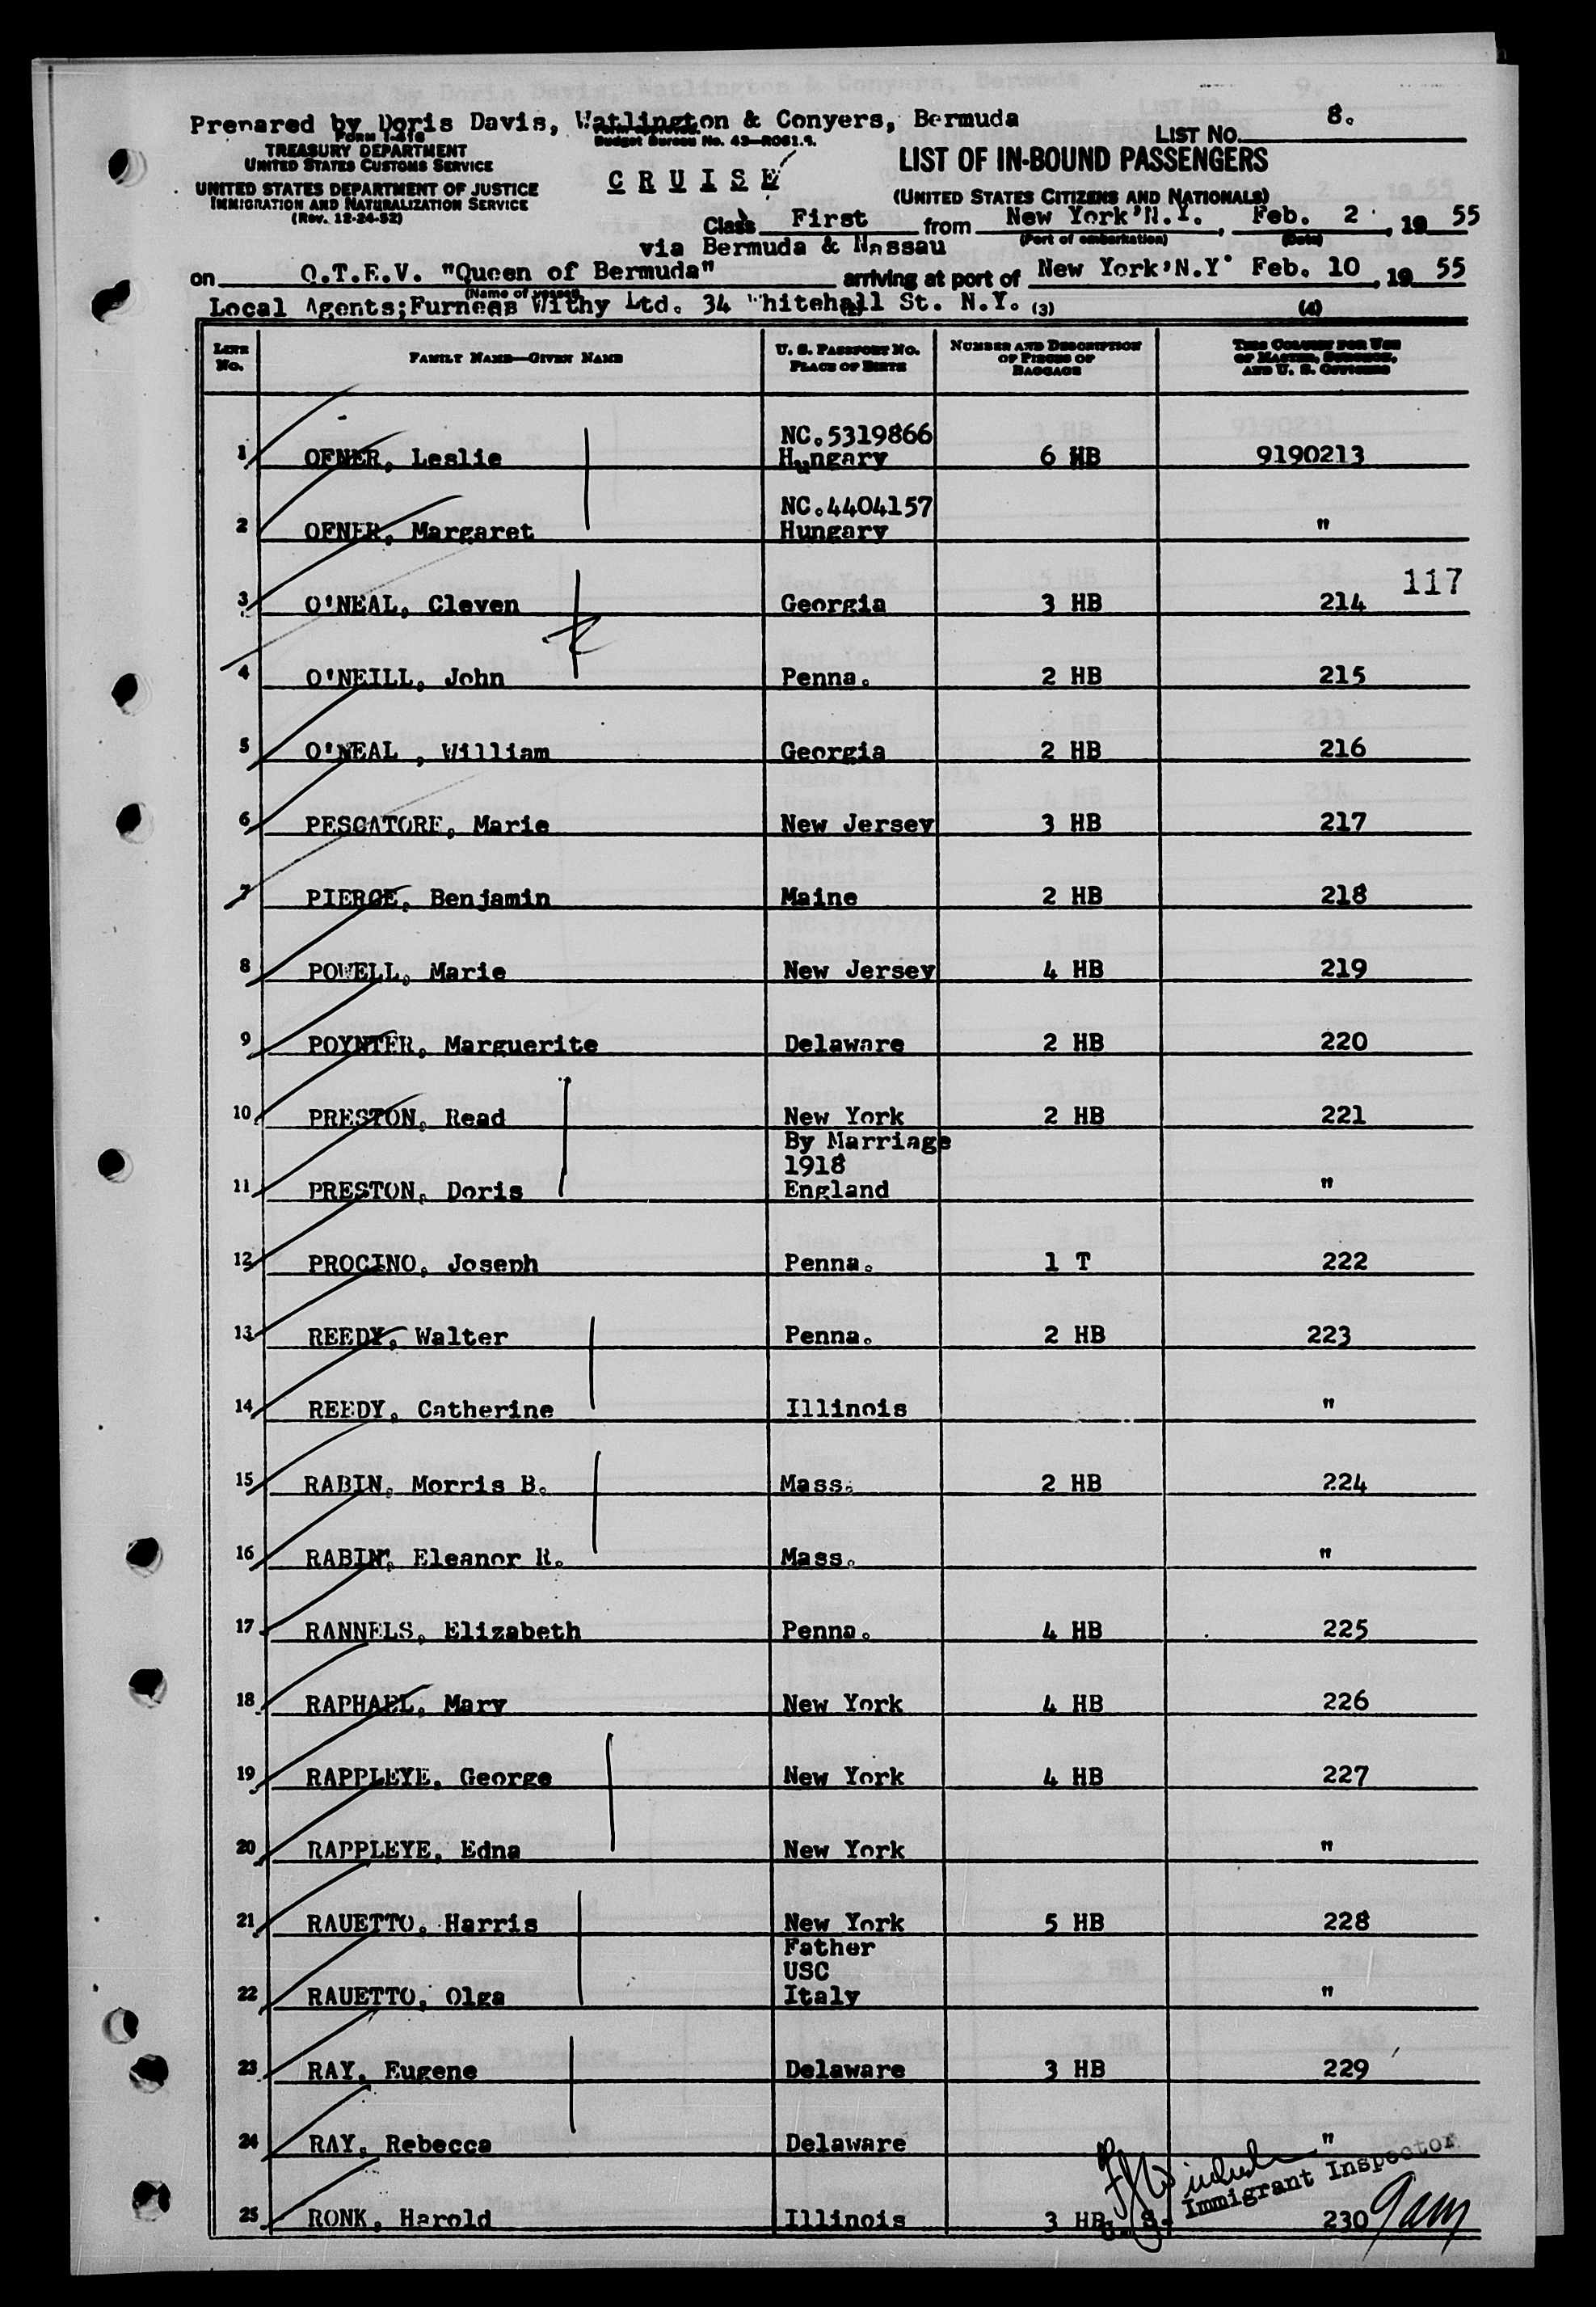 Prepared by Doris Davis, Watlington & Conyers, Bermuda
LIST NO. 8.
FORM I-416
TREASURY DEPARTMENT
UNITED STATES CUSTOMS SERVICE
UNITED STATES DEPARTMENT OF JUSTICE
IMMIGRATION AND NATURALIZATION SERVICE
(Rev. 12-24-52)
Form approved.
Budget Bureau No. 43—R081.4.
CRUISE
LIST OF IN-BOUND PASSENGERS
(UNITED STATES CITIZENS AND NATIONALS)
Class First from New York, N.Y. , Feb. 2 , 19 55
(Port of embarkation) (Date)
via Bermuda & Nassau
on Q.T.E.V. "Queen of Bermuda" arriving at port of New York, N.Y. Feb. 10 , 19 55
(Name of vessel)
Local Agents;Furness Withy Ltd. 34 Whitehall St. N.Y. (3) (4)
LINE NO. FAMILY NAME—GIVEN NAME U. S. PASSPORT NO. PLACE OF BIRTH NUMBER AND DESCRIPTION OF PIECES OF BAGGAGE THIS COLUMN FOR USE OF MASTER, SURGEON, AND U. S. OFFICERS
NC.5319866
1 OFNER, Leslie Hungary 6 HB 9190213
NC.4404157
2 OFNER, Margaret Hungary "
117
3 O'NEAL, Cleven Georgia 3 HB 214
4 O'NEILL, John Penna. 2 HB 215
5 O'NEAL , William Georgia 2 HB 216
6 PESCATORE, Marie New Jersey 3 HB 217
7 PIERCE, Benjamin Maine 2 HB 218
8 POWELL, Marie New Jersey 4 HB 219
9 POYNTER, Marguerite Delaware 2 HB 220
10 PRESTON, Read New York 2 HB 221
By Marriage
1918
11 PRESTON, Doris England "
12 PROCINO, Joseph Penna. 1 T 222
13 REEDY, Walter Penna. 2 HB 223
14 REEDY, Catherine Illinois "
15 RABIN, Morris B. Mass. 2 HB 224
16 RABIN, Eleanor R. Mass. "
17 RANNELS, Elizabeth Penna. 4 HB 225
18 RAPHAEL, Mary New York 4 HB 226
19 RAPPLEYE, George New York 4 HB 227
20 RAPPLEYE, Edna New York "
21 RAUETTO, Harris New York 5 HB 228
Father
USC
22 RAUETTO, Olga Italy "
23 RAY, Eugene Delaware 3 HB 229
24 RAY, Rebecca Delaware "
U. S. Immigrant Inspector
25 RONK, Harold Illinois 3 HB 230